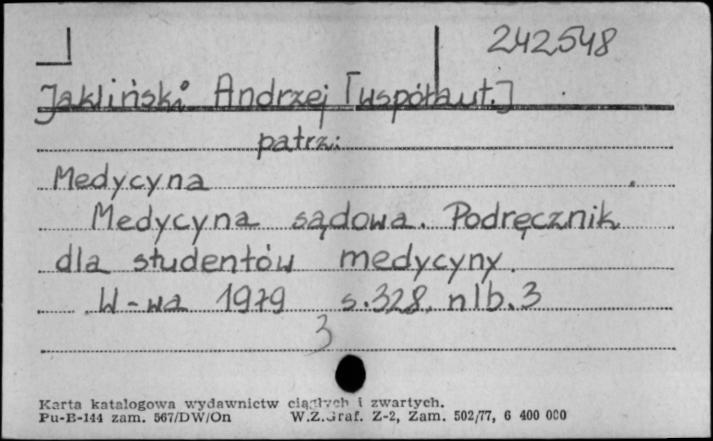 242548
Jakliński Andrzej [współaut.]
patrz:
Medycyna
Medycyna sądowa. Podręcznik
dla studentów medycyny.
W-wa 1979 s. 328, nlb. 3
3
Karta katalogowa wydawnictw ciągłych i zwartych.
Pu-B-144 zam. 567/DW/On W.Z.Graf. Z-2, Zam. 502/77, 6 400 000